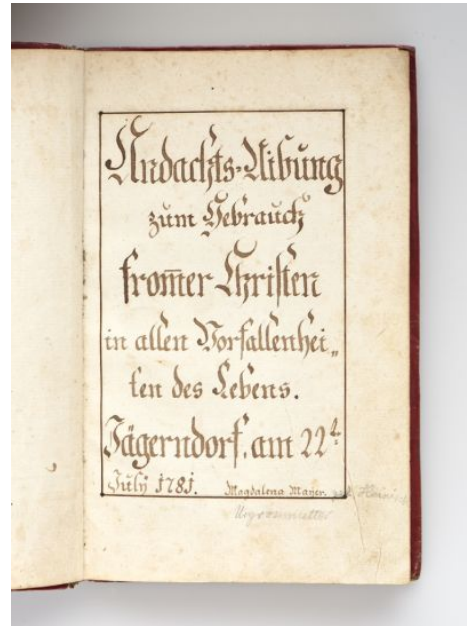 Andachts-Uibung
zum Gebrauch
from̅er Christen
in allen Vorfallenhei„
ten des Lebens.
Jägerndorf. am 22t:
July 1781. Magdalena Mayer.
Urgrossmutter